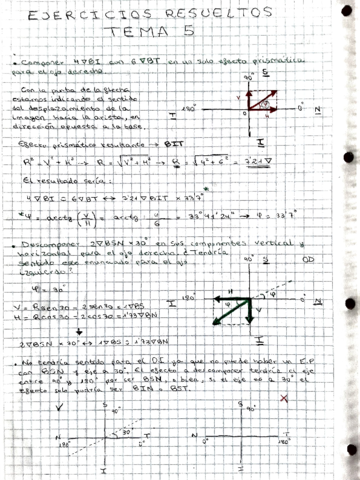 EJERCICIOS RESUELTOS
TEMA 5
• Componer 4∇BI con 6∇BT en un solo efecto prismático
para el ojo derecho.
Con la punta de la flecha
estamos indicando el sentido
del desplazamiento de la
imagen hacia la arista, en
dirección opuesta a la base.
90° S
180° 0° N
T
I
V
H
Efecto prismático resultante → BIT
R² = V² + H² → R = √V² + H² → R = √4² + 6² = 7'21∇
El resultado sería:
4∇BI = 6∇BT ↔ 7'21∇BIT × 33'7°
*φ = arctg (V/H) = arctg 4/6 = 33°41'24" → φ = 33'7°
• Descomponer 2∇BSN × 30° en sus componentes vertical y
horizontal para el ojo derecho. ¿Tendría
sentido este enunciado para el ojo
izquierdo?
90° S OD
φ = 30°
T 180° 0° N
H
φ
V
I
V = R sen 30 = 2 sen 30 = 1∇BS
H = R cos 30 = 2 cos 30 = 1'73∇BN
2∇BSN × 30° ↔ 1∇BS = 1'73∇BN
• No tendría sentido para el OI ya que no puede haber un E.P
con BSN y eje a 30°. El efecto a descomponer tendría el eje
entre 90° y 180° por ser BSN, o bien, si el eje es a 30° el
efecto solo podría ser BIN = BST.
V X
S 90° S 90°
N 180° 30° T 0° N T 0°
I I